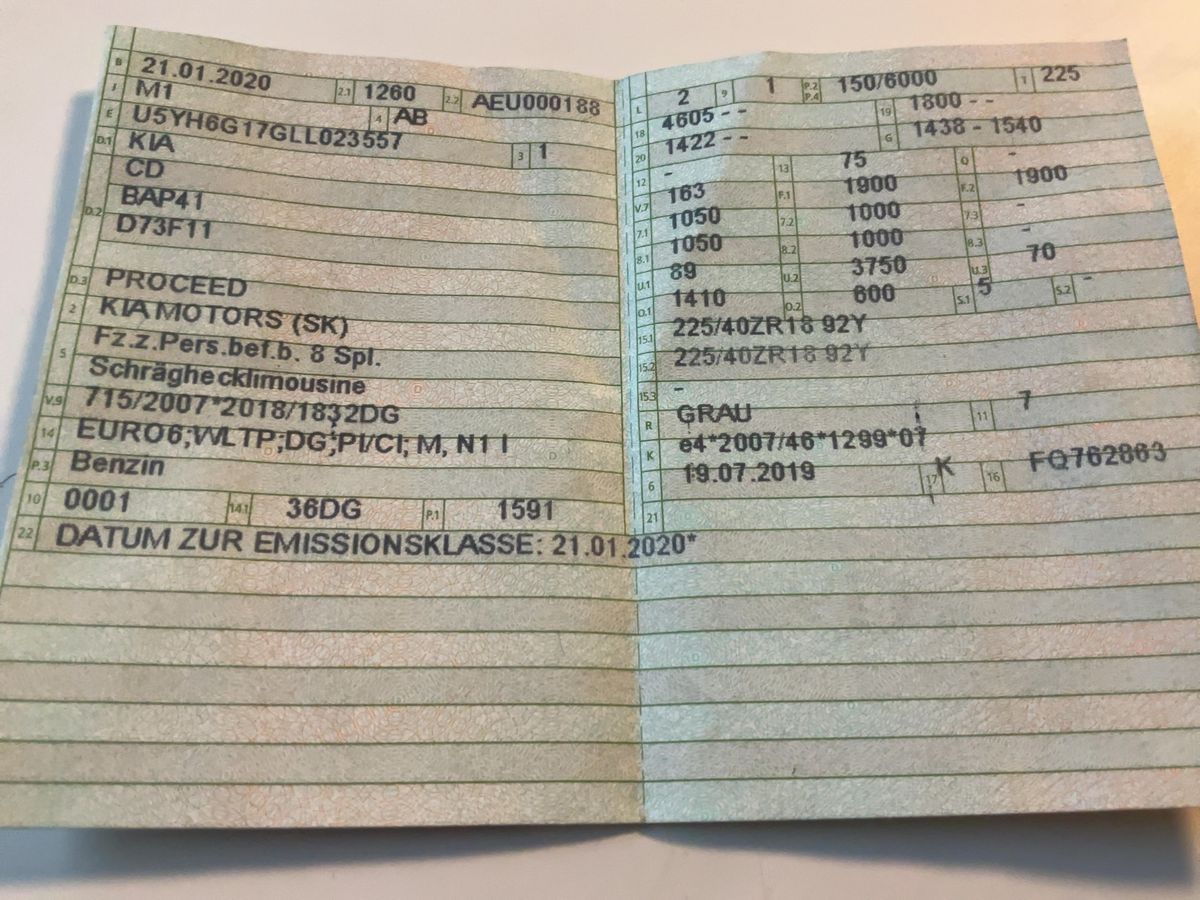 B 21.01.2020 2.1 1260 2.2 AEU000188
J M1 4 AB
E U5YH6G17GLL023557 3 1
D.1 KIA
D.2 CD
BAP41
D73F11
D.3 PROCEED
2 KIA MOTORS (SK)
5 Fz.z.Pers.bef.b. 8 Spl.
Schräghecklimousine
V.9 715/2007*2018/1832DG
14 EURO6;WLTP;DG;PI/CI; M, N1 I
P.3 Benzin
10 0001 14.1 36DG P.1 1591
22 DATUM ZUR EMISSIONSKLASSE: 21.01.2020*
L 2 9 1 P.2 P.4 150/6000 T 225
18 4605 - - 19 1800 - -
20 1422 - - G 1438 - 1540
12 - 13 75 Q -
V.7 163 F.1 1900 F.2 1900
7.1 1050 7.2 1000 7.3 -
8.1 1050 8.2 1000 8.3 -
U.1 89 U.2 3750 U.3 70
O.1 1410 O.2 600 S.1 5 S.2 -
15.1 225/40ZR18 92Y
15.2 225/40ZR18 92Y
15.3 -
R GRAU 11 7
K e4*2007/46*1299*07
6 19.07.2019 17 K 16 FQ762863
21